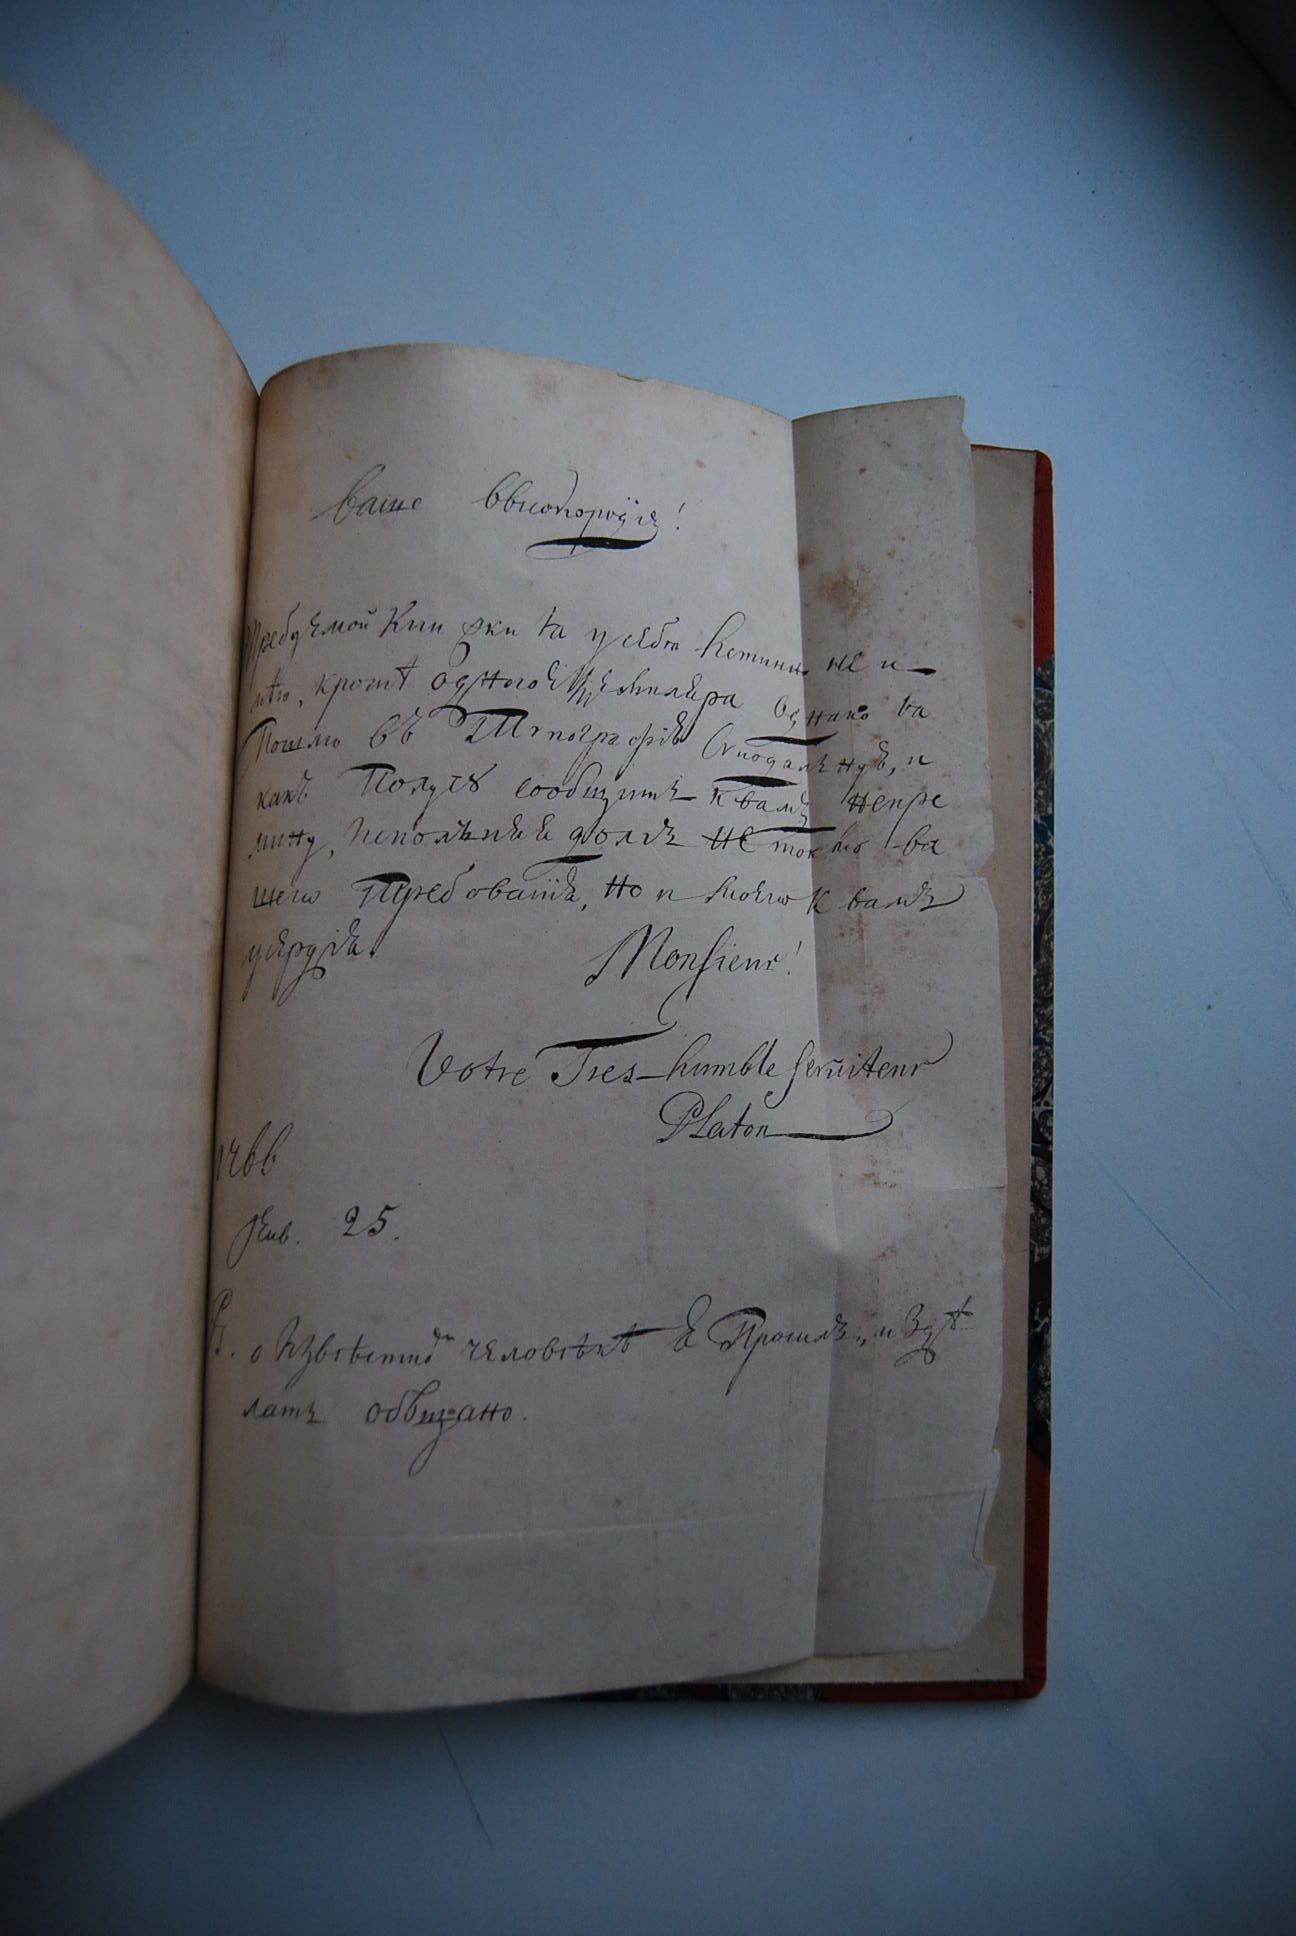 Ваше Высокородїе!
Требуемой книжки я у себя истинно не и-
мѣю, кромѣ одного экземпляра однако я
пошлю въ Типографїю Сѵнодальную, и
какъ получу сообщить к вамъ непре
мину, исполняя долгъ не токмо ва
шего требованїя, но и моего к вамъ
усердїя.
Monsieur!
Votre Tres-humble serviteur
Platon
1766
Генв. 25.
P. о извѣстномъ человѣкѣ я просилъ, и здѣ
лать обѣщано.